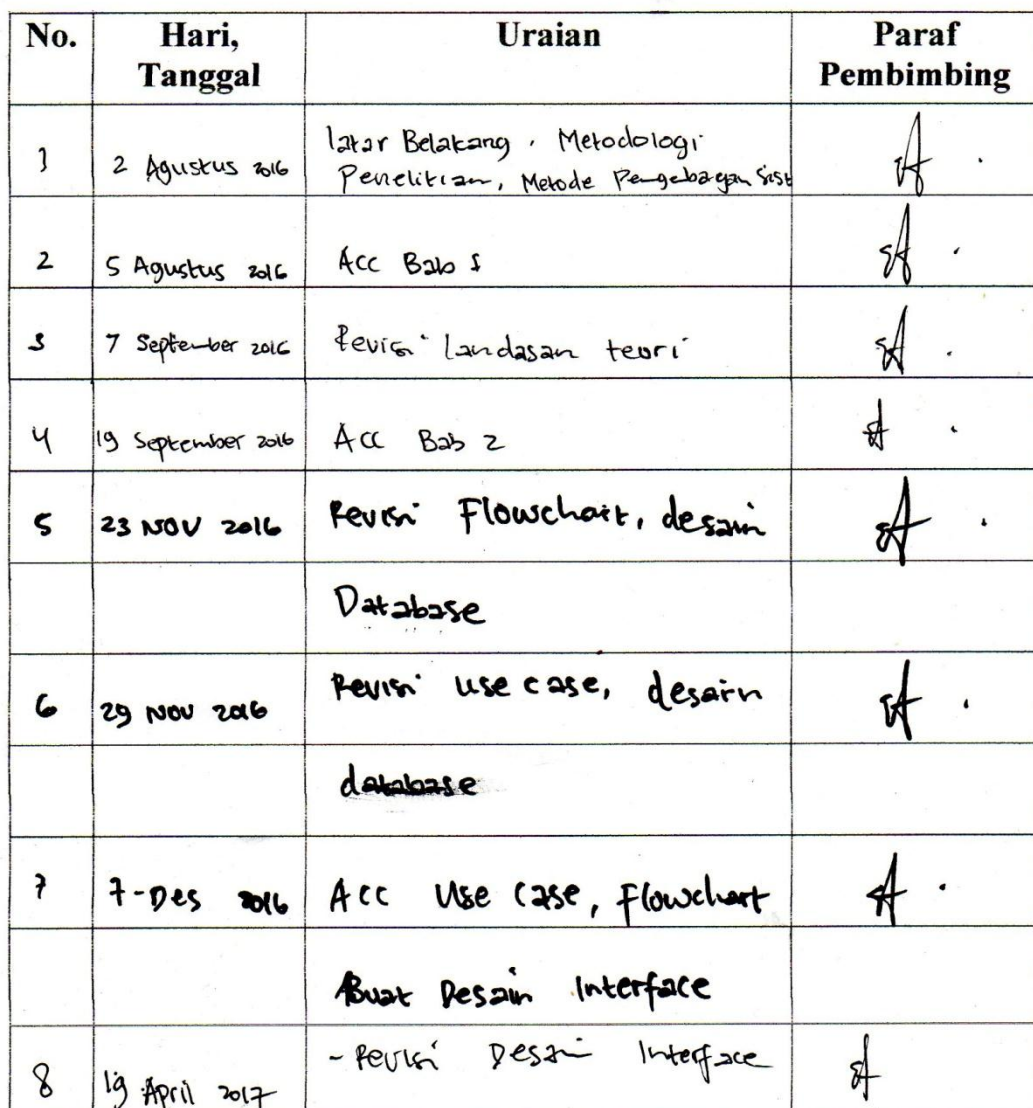 No. Hari, Tanggal Uraian Paraf Pembimbing
1 2 Agustus 2016 latar Belakang, Metodologi
Penelitian, Metode Pengebangan Sist
2 5 Agustus 2016 Acc Bab 1
3 7 September 2016 Revisi landasan teori
4 19 September 2016 Acc Bab 2
5 23 NOV 2016 Revisi Flowchart, desain
Database
6 29 NOV 2016 Revisi use case, desain
database
7 7-Des 2016 Acc Use Case, Flowchart
Buat Desain Interface
8 19 April 2017 - Revisi Desain Interface